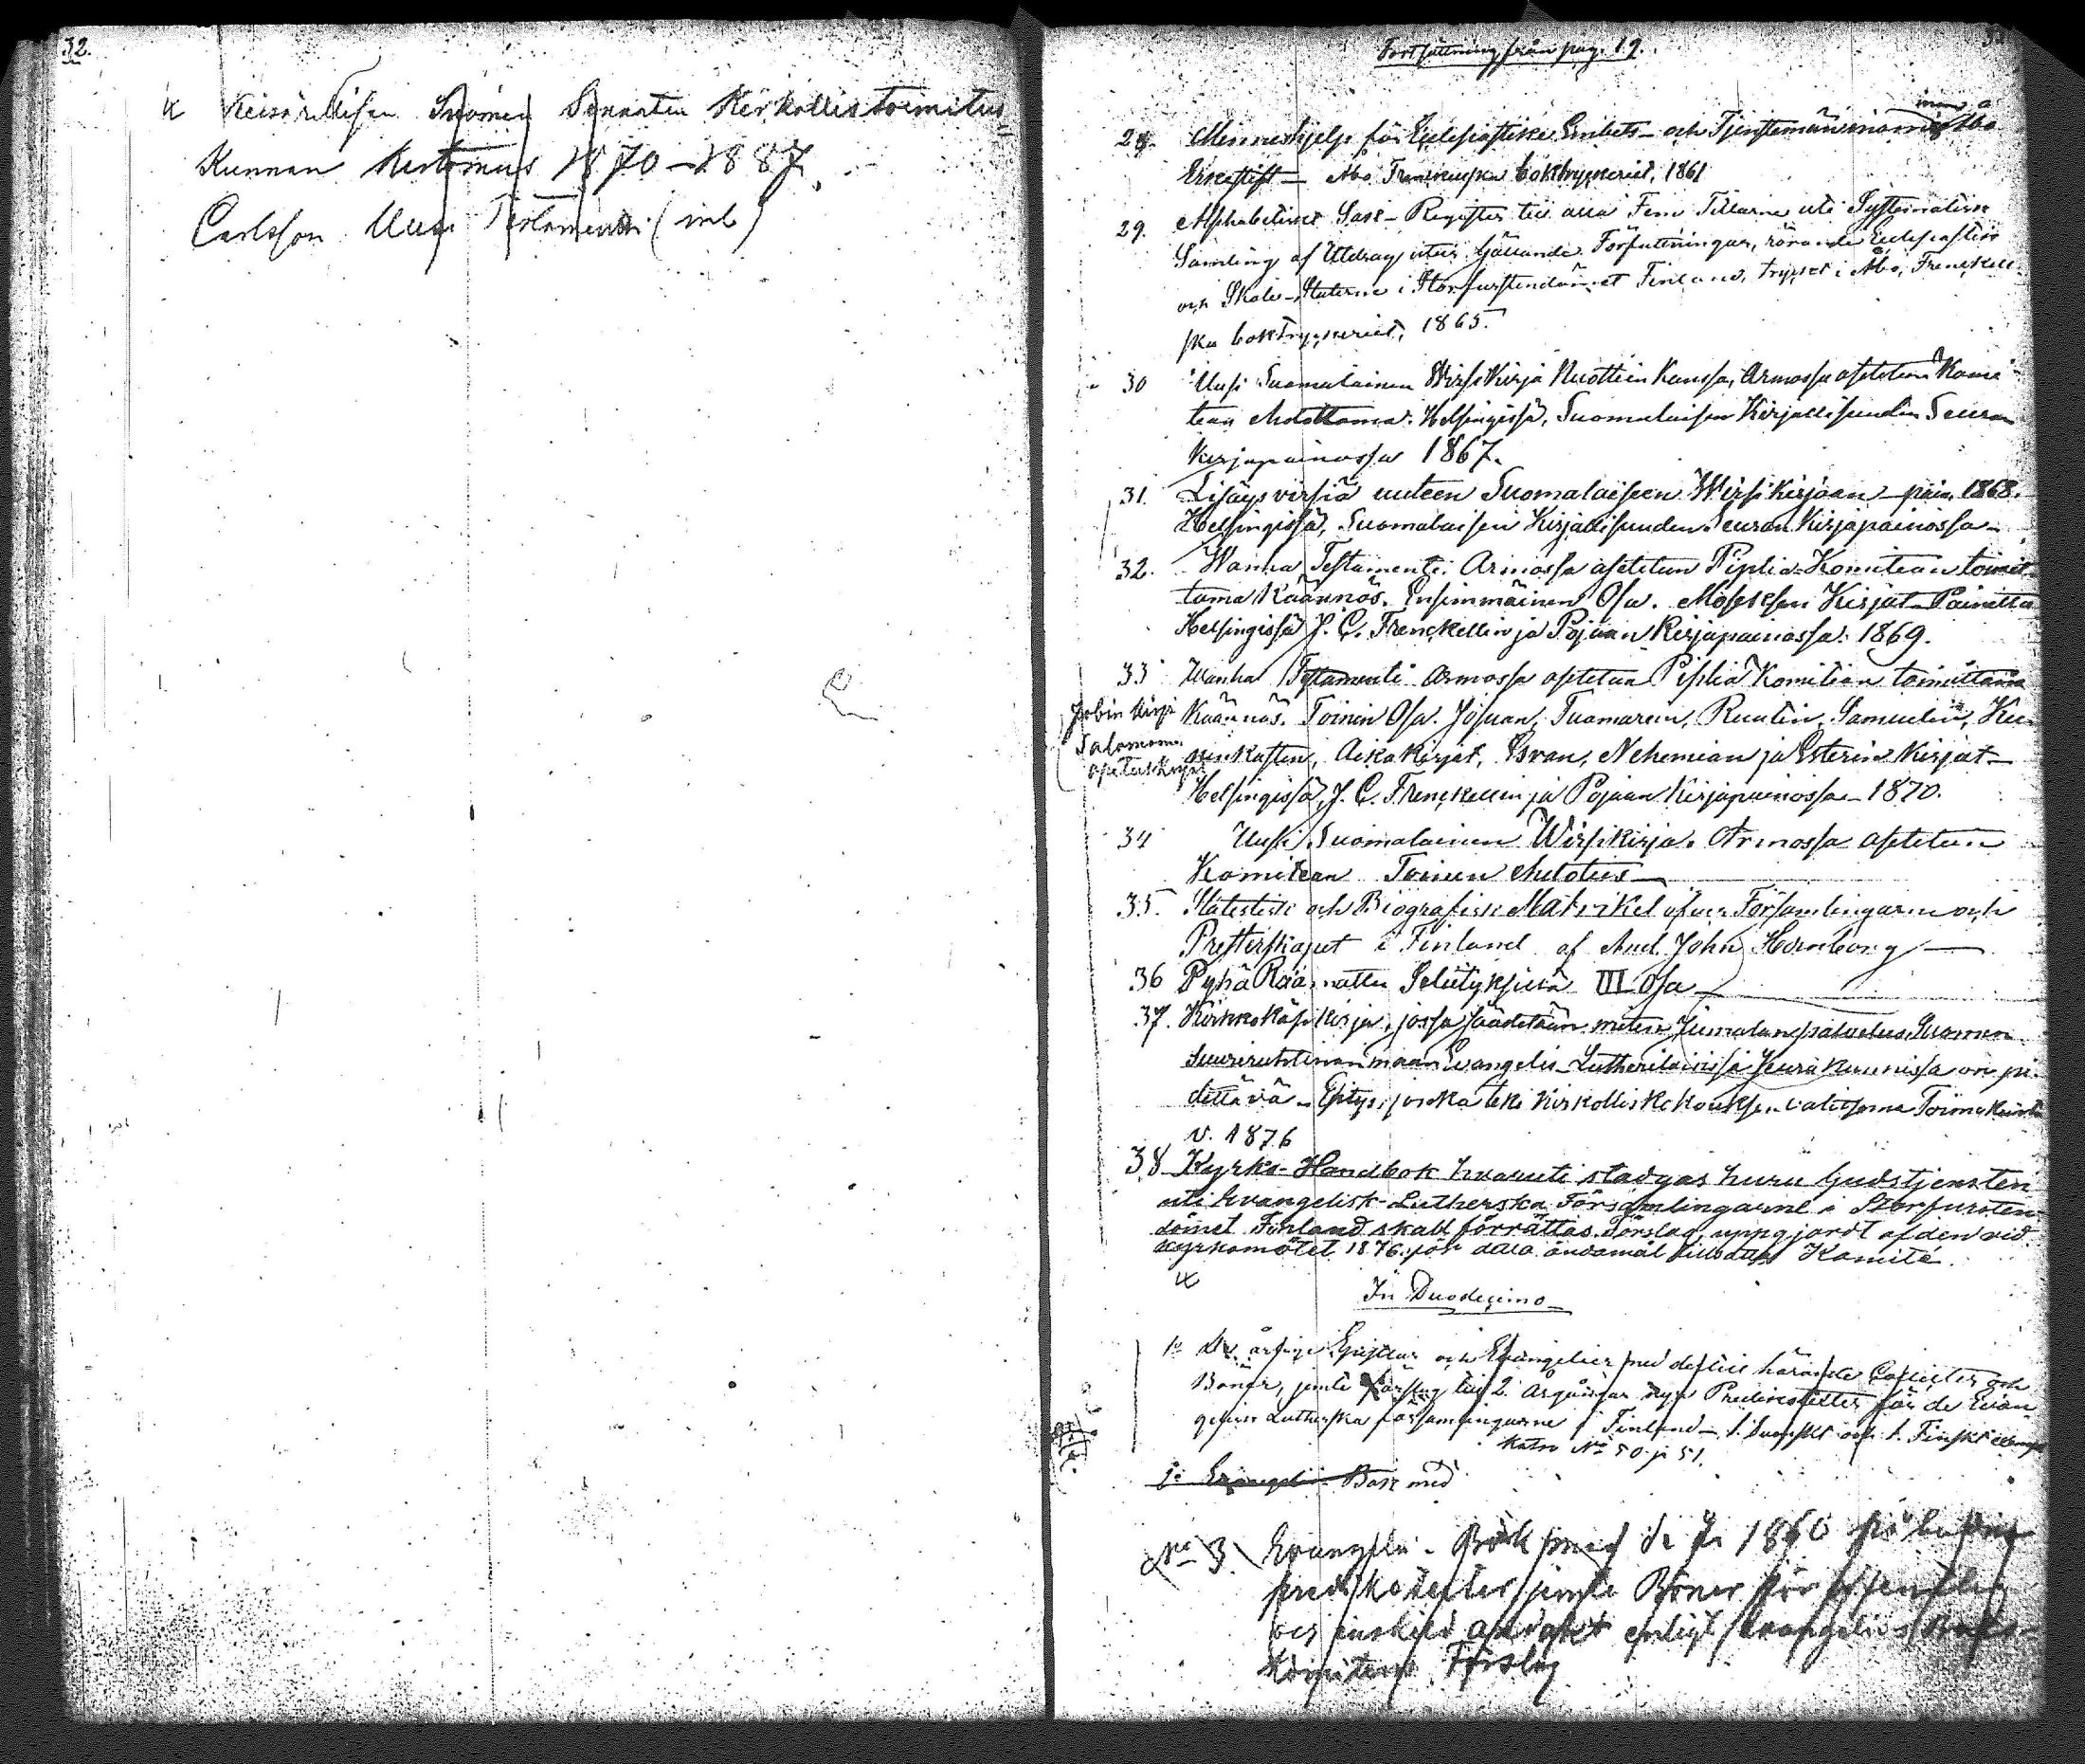 32.
Keisarillisen Suomen Senaatin Kirkollistoimitus
Kunnan Kertomus 1870–1887.
Carlsson Uusi Testamentti (inb)
Fortsättning från pag. 19.
28. Minneshjelp för Ecclesiastike Embets- och Tjenstemän inom Åbo
Erkestift — Åbo Frenckelska boktryckeriet, 1861
29. Alphabetiskt Sak-Register till alla Fem Delarna uti Systematisk
Samling af Utdrag utur Gällande Författningar, rörande Ecclesiastik
och Skole-Staterna i Storfurstendömet Finland, tryckt i Åbo, Frenckell-
ska boktryckeriet, 1865.
30 Uusi Suomalainen Wirsikirja Nuottein Kanssa, Armossa asetetun Komi-
tean ehdottama. Helsingissä, Suomalaisen Kirjallisuuden Seuran
Kirjapainossa 1867.
31. Lisäys virsiä uuteen Suomalaiseen Wirsikirjaan – pain. 1868.
Helsingissä, Suomalaisen Kirjallisuuden Seuran Kirjapainossa –
32. Wanha Testamenti Armossa asetetun Piplia-Komitean toimit-
tama Käännös. Ensimmäinen Osa. Moseksen Kirjat – Painettu
Helsingissä J. C. Frenckellin ja Pojan Kirjapainossa. 1869.
33 Wanha Testamenti Armossa asetetun Piplia Komitean toimittama
Jobin kirja Käännös. Toinen Osa. Josuan, Tuomarein, Ruutin, Samuelin, Ku-
Salomoni ninkasten, Aikakirjat, Esran, Nehemian ja Esterin Kirjat –
Helsingissä, J. C. Frenckellin ja Pojan Kirjapainossa – 1870.
34 Uusi Suomalainen Wirsikirja. Armossa asetetun
Komitean Toinen ehdotus —
35. Statistisk och Biografisk Matrikel öfver Församlingarne och
Presterskapet i Finland af And. John Hornborg —
36 Pyhä Raamattu Selityksinä III Osa —
37. Kirkkokäsikirja, jossa säädetään miten Jumalanpalvelus Suomen
Suuriruhtinanmaan Evangelis-Lutherilaisissa Seurakunnissa on pi-
dettävä – Esitys, jonka teki Kirkolliskokouksen valitsema Toimikunta
v. 1876
38 Kyrko-Handbok hvaruti stadgas huru Gudstjensten
uti Evangelisk-Lutherska Församlingarne i Storfursten-
dömet Finland skall förrättas. Förslag, uppgjordt af den vid
kyrkomötet 1876 för detta ändamål tillsatta Komité.
In Duodecimo
1o De årlige Epistlar och Evangelier med dertill hörande Collecter och
Böner, jemte Förslag till 2 årgångar nya Predikotexter för de Evan-
geliskt Lutherska församlingarne i Finland – 1. Svenskt och 1. Finskt
Katso No 50 ja 51.
Evangelii Bok med
No 3. Evangelii-Bok med de år 1860
predikotexter jemte Böner för offentlig
och enskild andakt enligt Evangelii-Boks-
Komiténs Förslag